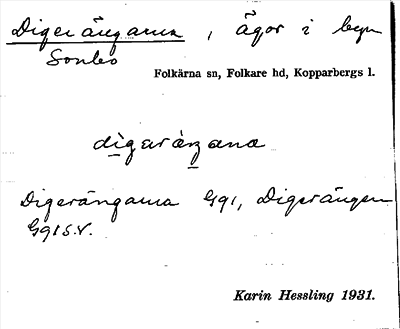 Digerängarna, ägor i byn
Sonbo
Folkärna sn, Folkare hd, Kopparbergs l.
digəràŋana
Digerängarna Gg1, Digerängen
Gg1 S.V.
Karin Hessling 1931.